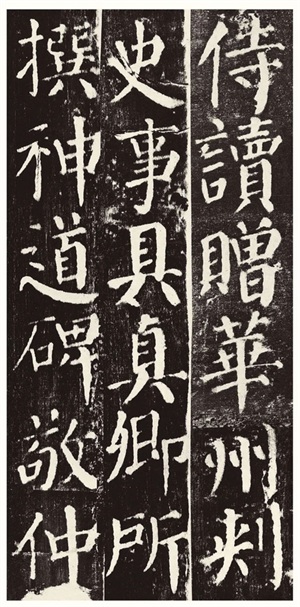 侍讀贈華州刾
史事具真卿所
撰神道碑敬仲